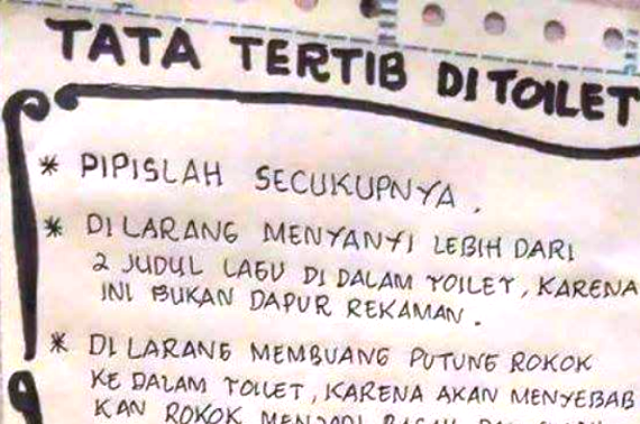 TATA TERTIB DI TOILET
* PIPISLAH SECUKUPNYA.
* DI LARANG MENYANYI LEBIH DARI
2 JUDUL LAGU DI DALAM TOILET, KARENA
INI BUKAN DAPUR REKAMAN.
* DI LARANG MEMBUANG PUTUNG ROKOK
KE DALAM TOILET, KARENA AKAN MENYEBAB
KAN ROKOK MENJADI BASAH